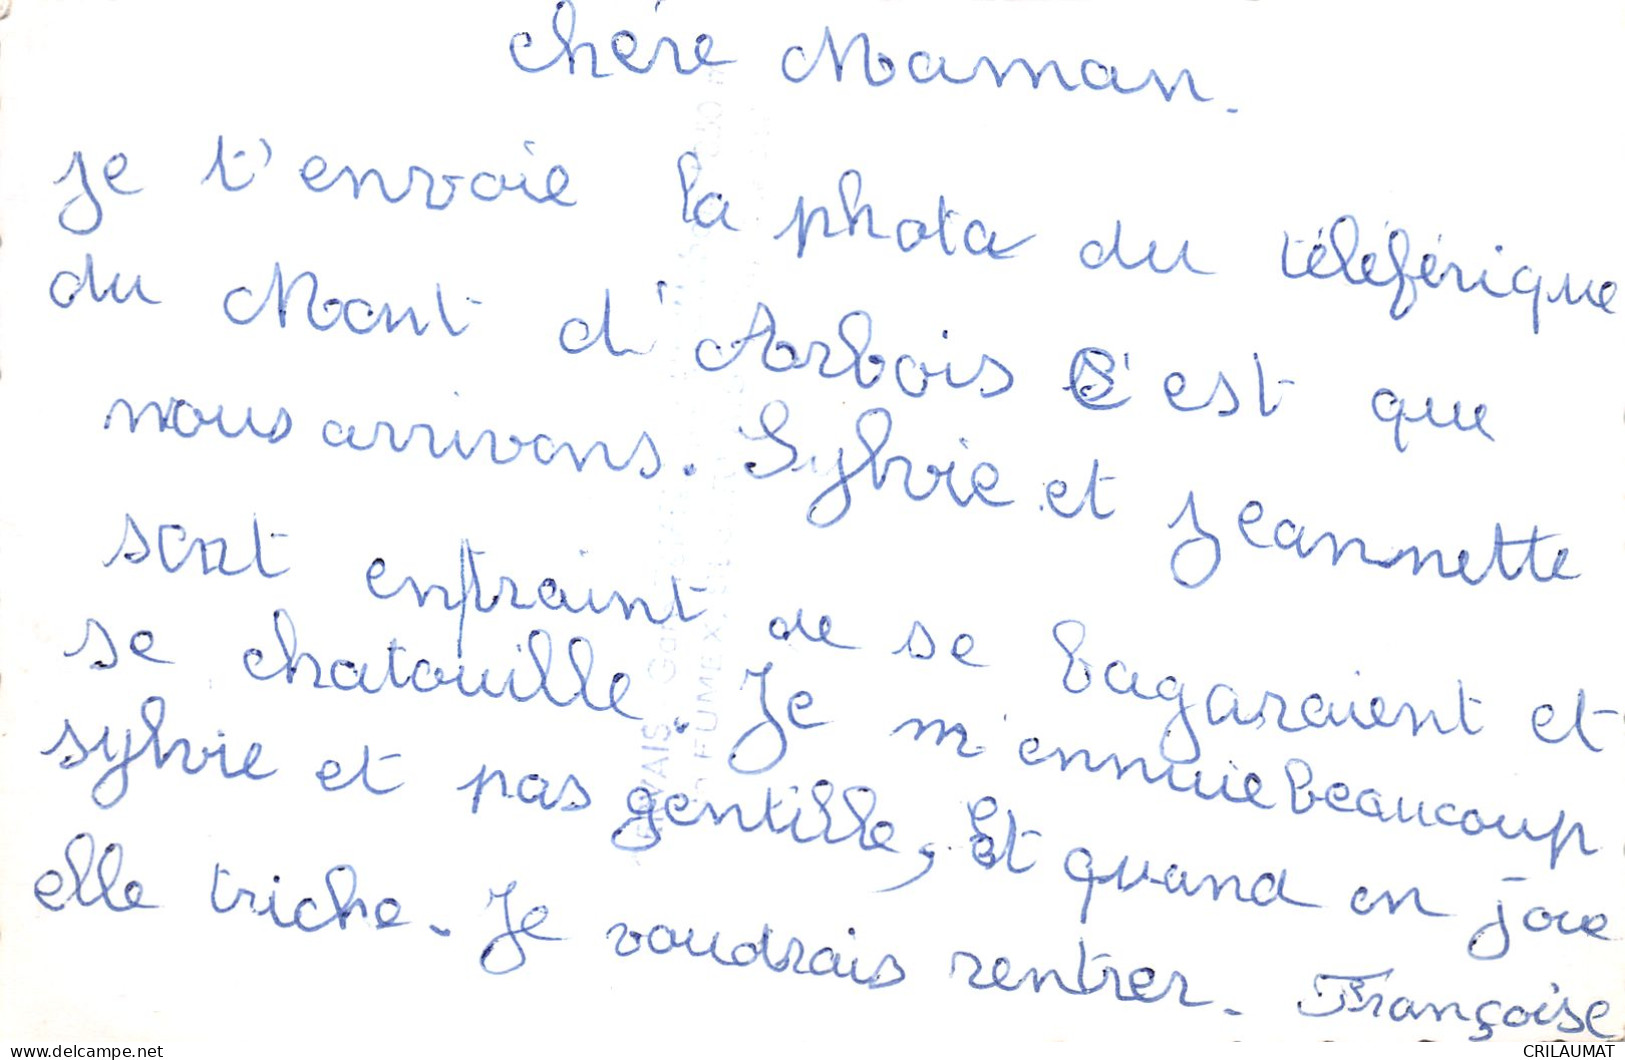 chère Maman.
je t'envoie la photo du téléférique
du Mont d'Arbois C'est que
nous arrivons. Sylvie et jeannette
sont enfraint de se bagaraient et
se chatouille. Je m'ennuie beaucoup
sylvie et pas gentille, Et quand on joue
elle triche. Je voudrais rentrer. Françoise
www.delcampe.net
CRILAUMAT